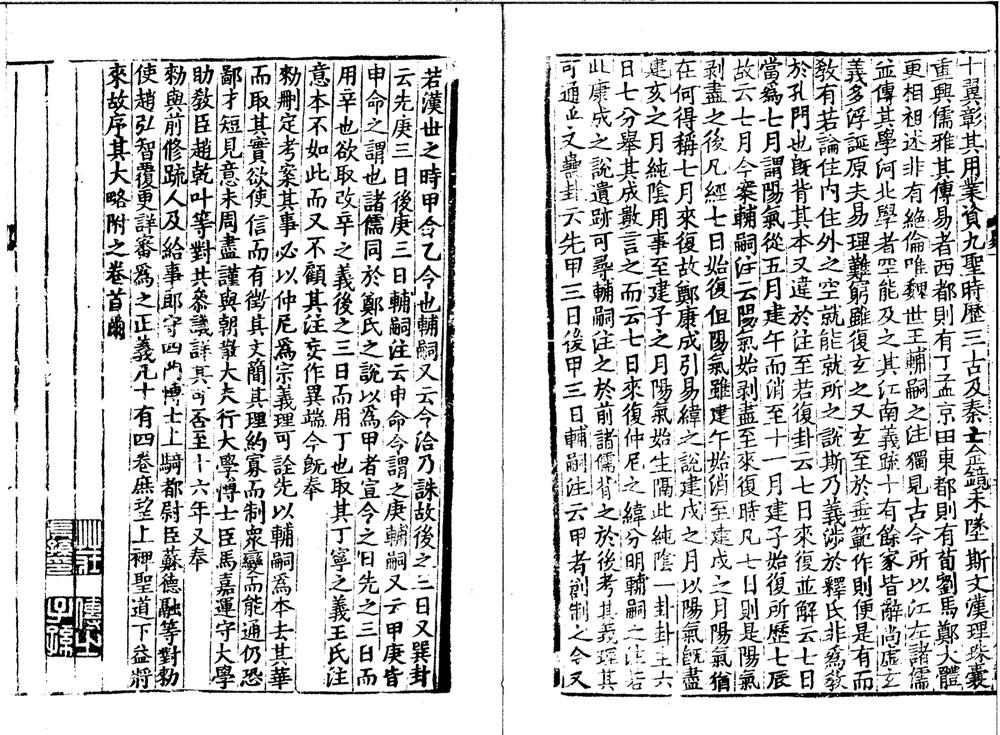 十翼彰其用業資九聖時歷三古及秦亡金鏡未墜斯文漢理珠囊
重興儒雅其傳易者西都則有丁孟京田東都則有荀劉馬鄭大體
更相祖述非有絶倫唯魏世王輔嗣之注獨見古今所以江左諸儒
並傳其學河北學者罕能及之其江南義疏十有餘家皆辭尚虛玄
義多浮誕原夫易理難窮雖復玄之又玄至於垂範作則便是有而
教有若論住内住外之空就能就所之說斯乃義涉於釋氏非爲教
於孔門也旣背其本又違於注至若復卦云七日來復並解云七日
當爲七月謂陽氣從五月建午而消至十一月建子始復所歷七辰
故云七月今案輔嗣注云陽氣始剥盡至來復時凡七日則是陽氣
剥盡之後凡經七日始復但陽氣雖建午始消至建戌之月陽氣猶
在何得稱七月來復故鄭康成引易緯之說建戌之月以陽氣旣盡
建亥之月純陰用事至建子之月陽氣始生隔此純陰一卦卦主六
日七分舉其成數言之而云七日來復仲尼之緯分明輔嗣之注若
此康成之說遺跡可尋輔嗣注之於前諸儒背之於後考其義理其
可通乎又蠱卦云先甲三日後甲三日輔嗣注云甲者創制之令又
若漢世之時甲令乙令也輔嗣又云令洽乃誅故後之三日又巽卦
云先庚三日後庚三日輔嗣注云申命令謂之庚輔嗣又云甲庚皆
申命之謂也諸儒同於鄭氏之說以爲甲者宣令之日先之三日而
用辛也欲取改辛之義後之三日而用丁也取其丁寧之義王氏注
意本不如此而又不顧其注妄作異端今旣奉
勑刪定考案其事必以仲尼爲宗義理可詮先以輔嗣爲本去其華
而取其實欲使信而有徵其文簡其理約寡而制衆變而能通仍恐
鄙才短見意未周盡謹與朝散大夫行大學博士臣馬嘉運守大學
助教臣趙乾叶等對共參議詳其可否至十六年又奉
勑與前修疏人及給事郎守四門博士上騎都尉臣蘇德融等對勑
使趙弘智覆更詳審爲之正義凡十有四卷庶望上裨聖道下益將
來故序其大略附之卷首爾